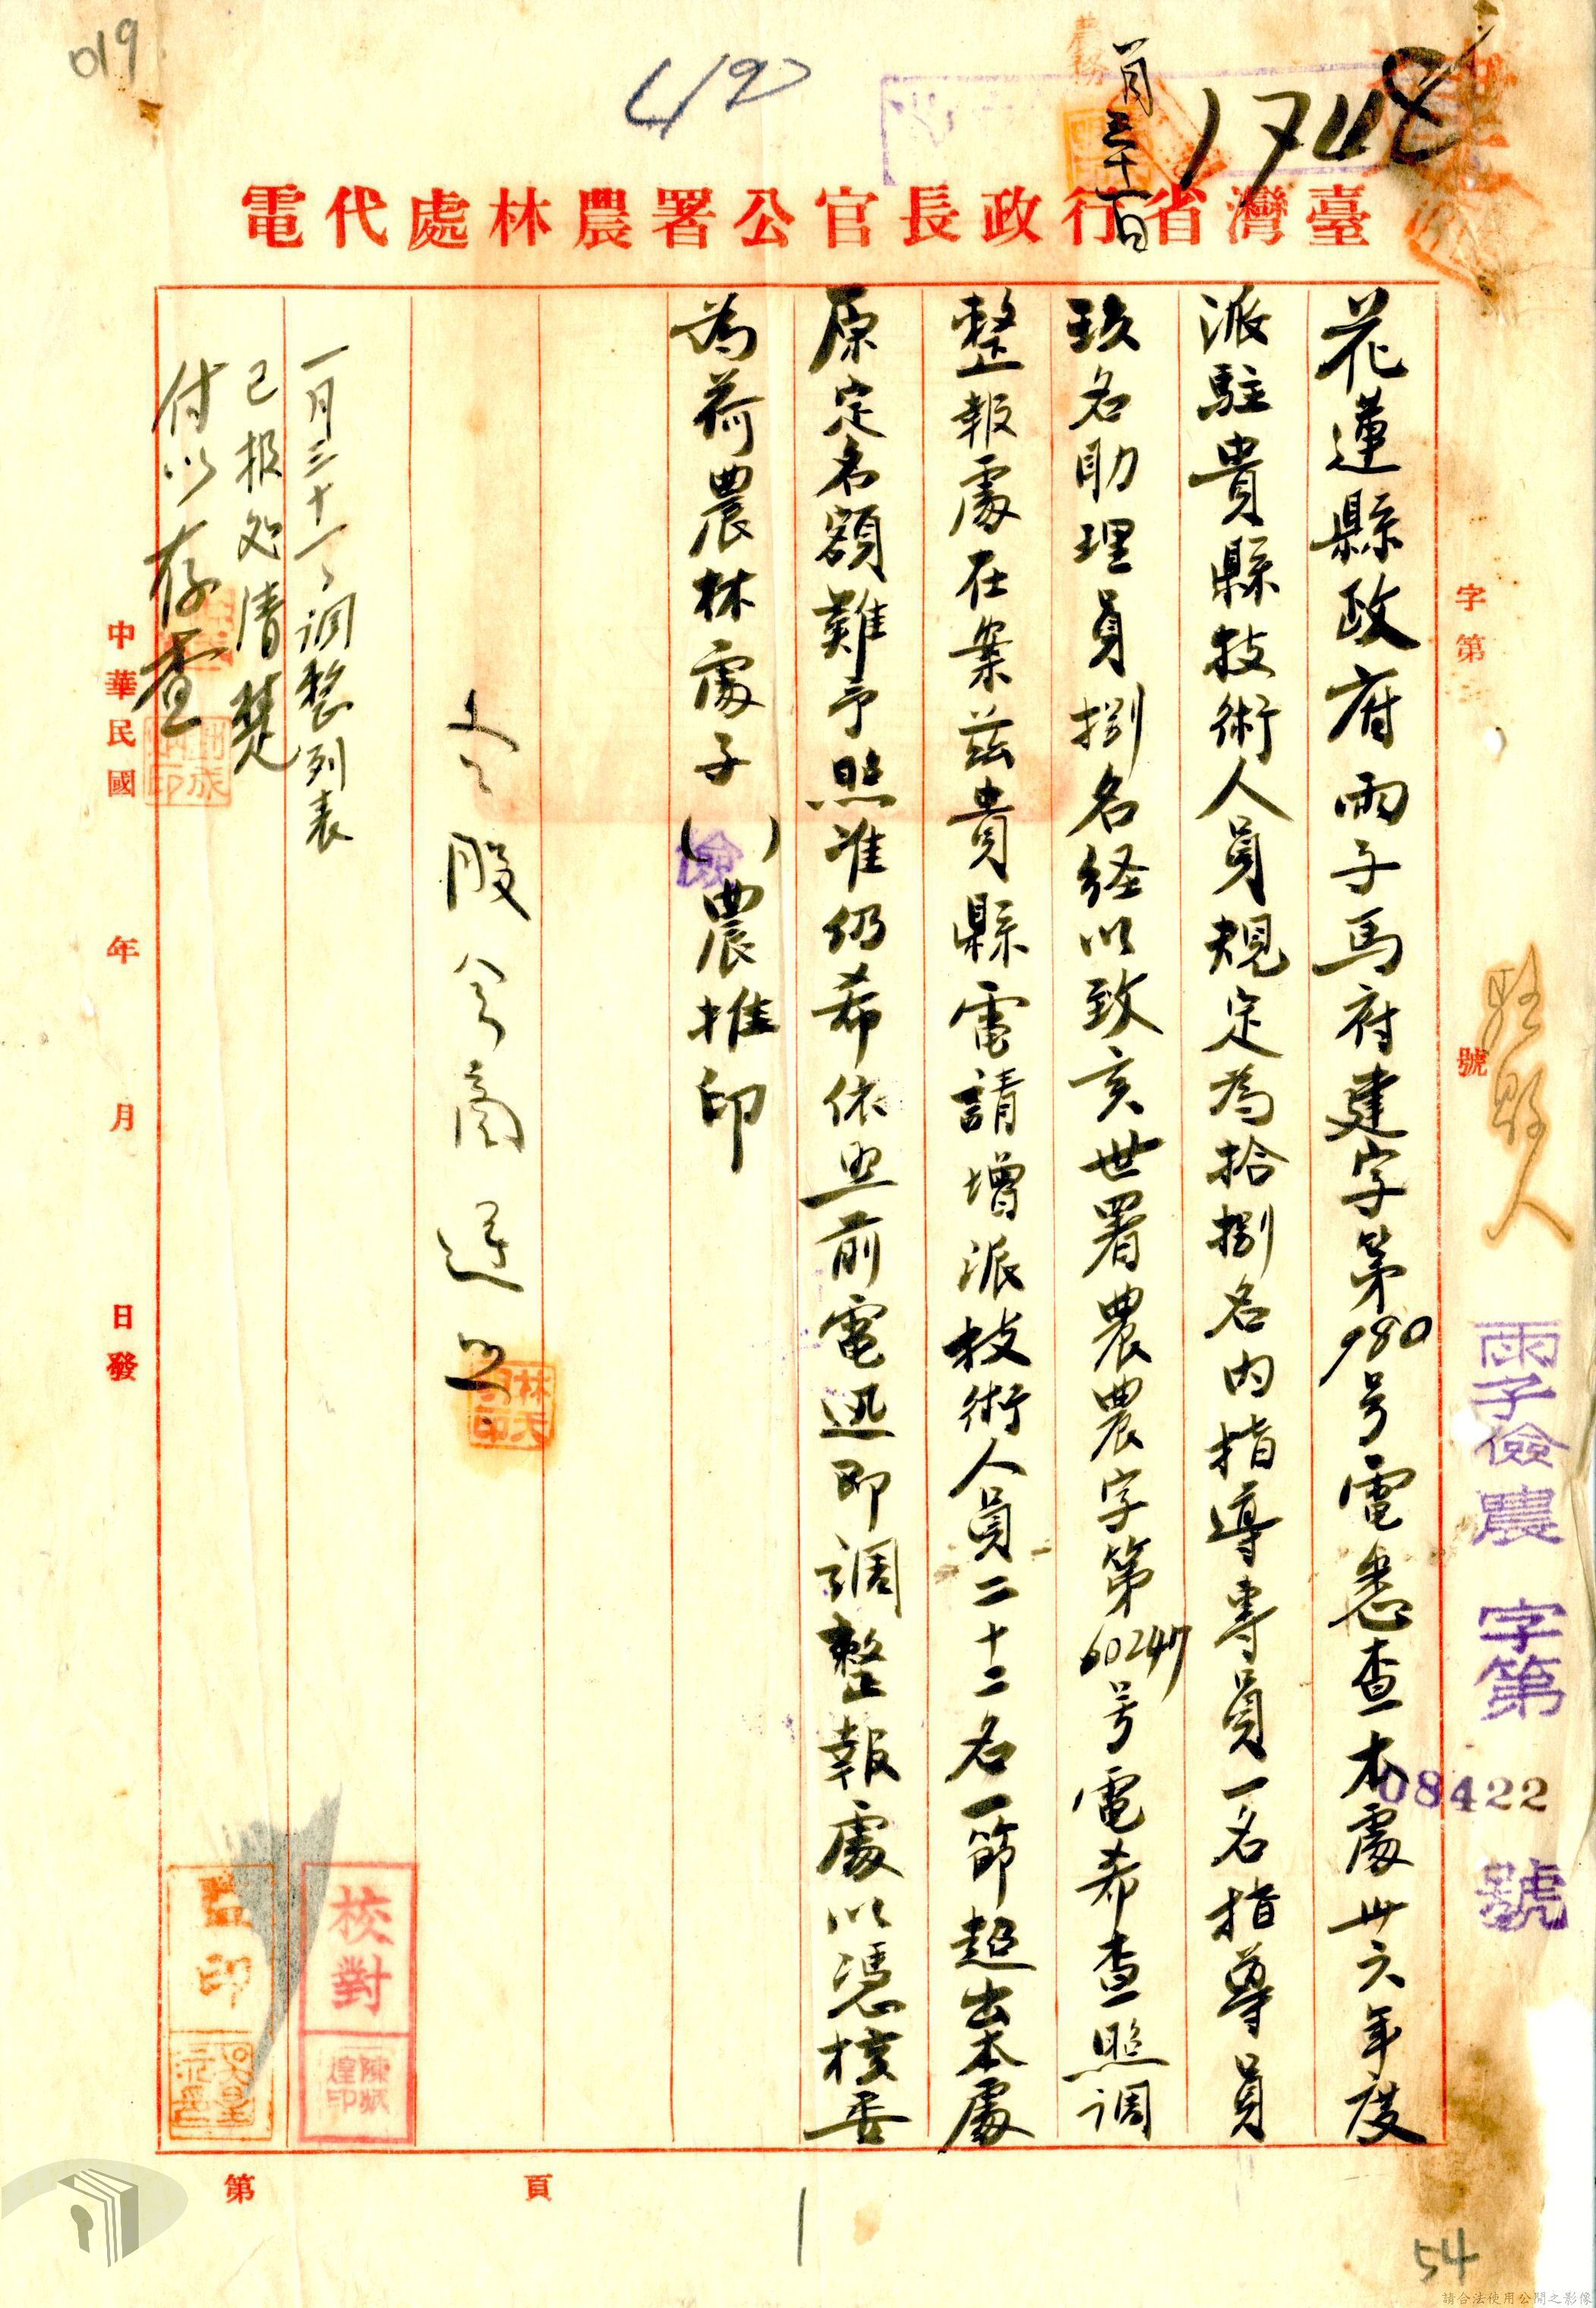 019
412
1748
一月三十一日
臺灣省行政長官公署農林處代電
字第
號
雨子儉農 字第 08422 號
花蓮縣政府雨子馬府建字第980号電悉查本處卅六年度
派駐貴縣技術人員規定為拾捌名內指導專員一名指導員
玖名助理員捌名経以致亥世署農農字第60247号電希查照調
整報處在案茲貴縣電請增派技術人員二十二名一節超出本處
原定名額難予照准仍希依照前電迅即調整報處以憑核委
為荷農林處子(儉)農推印
一月三十一日調整列表
已报処清楚
付以存查
中華民國 年 月 日發
校對
監印
第 頁
54
請合法使用公開之影像